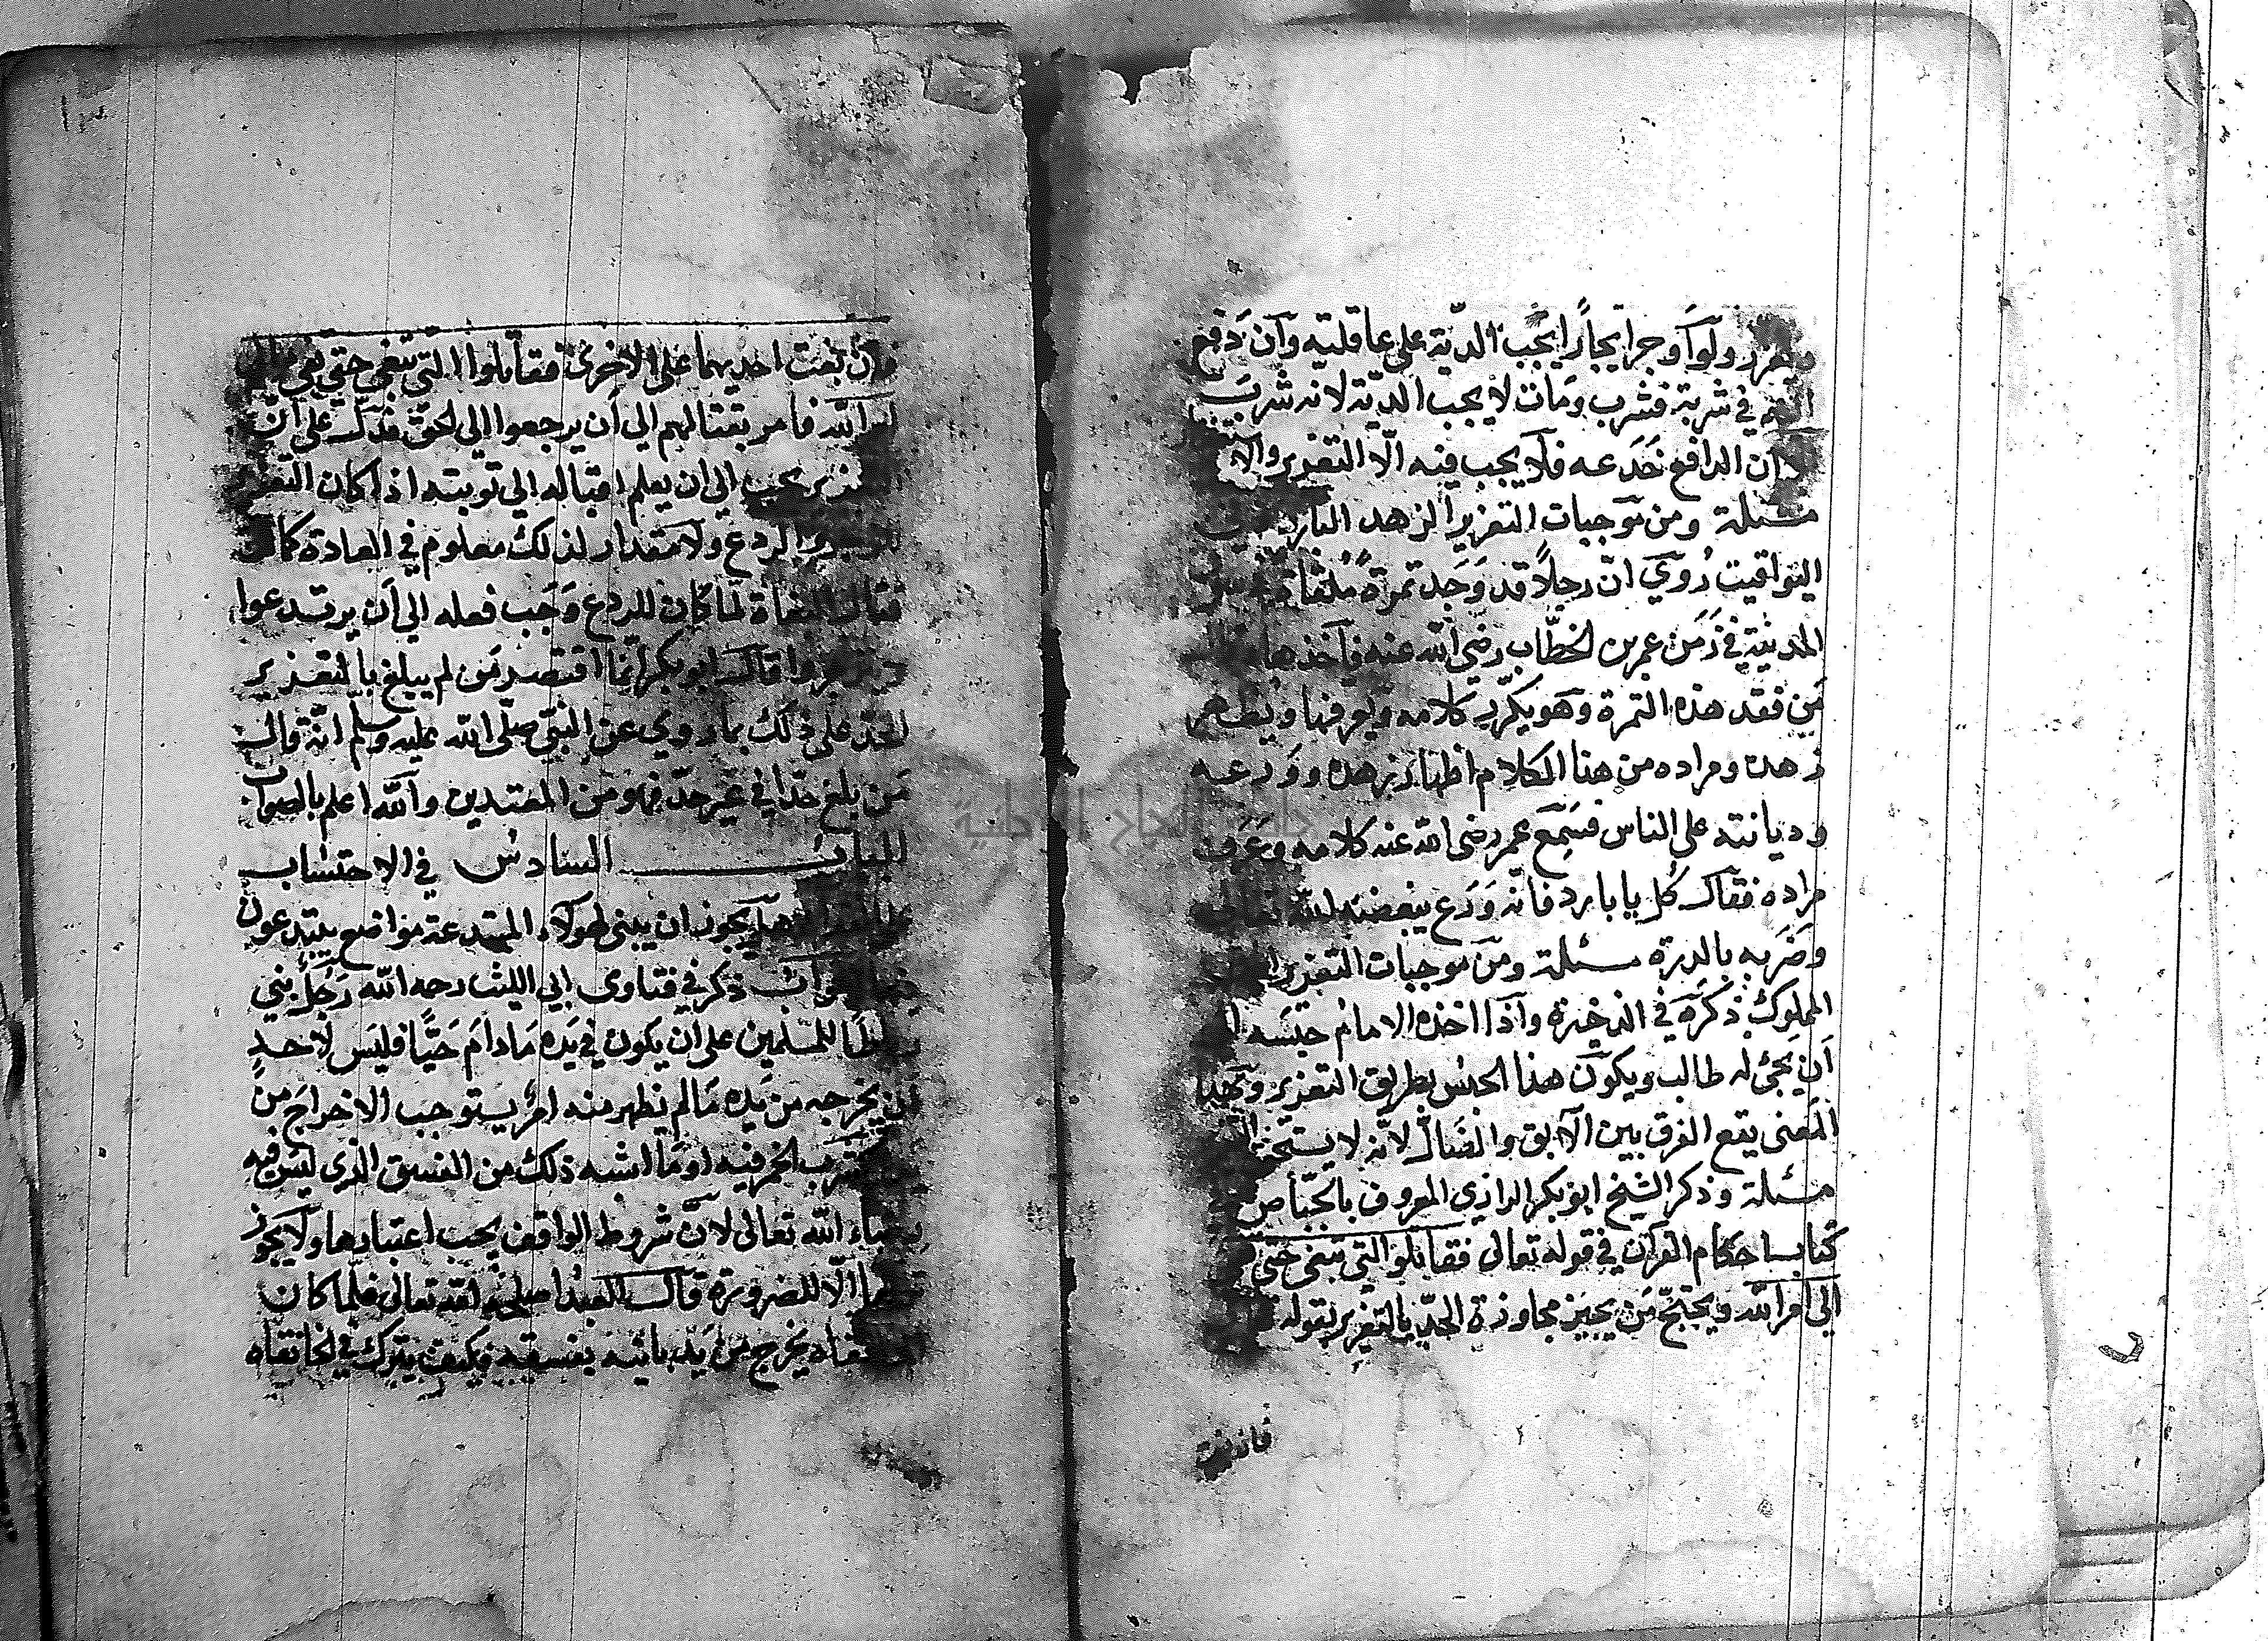 ويعزر ولو أوجر إيجارا يجب الدية على عاقلته وان دفع
في شربة فشرب ومات لا يجب الدية لانه شرب
ان الدافع خدعه فلا يجب فيه الا التعزير والا
مسئلة ومن موجبات التعزير الزهد البارد
اليواقيت روي ان رجلا قد وجد تمرة ملقاة
المدينة في زمن عمر بن الخطاب رضي الله عنه فاخذها
من فقد هذه التمرة وهو يكرر كلامه ويعرفها ويظهر
زهده ومراده من هذا الكلام اظهار زهده وورعه
وديانته على الناس فسمع عمر رضى الله عنه كلامه وعرف
مراده فقال كل يا بارد فانه ورع يبغضه الله تعالى
وضربه بالدرة مسئلة ومن موجبات التعزير
المملوك ذكره في الذخيرة واذا اخذه الامام حبسه
ان يجئ له طالب ويكون هذا الحبس بطريق التعزير وبهذا
المعنى يقع الفرق بين الآبق والضال لانه لا يستحق
مسئلة وذكر الشيخ ابو بكر الرازي المعروف بالجصاص
كتاب احكام القرآن في قوله تعالى فقاتلوا التي تبغى حتى
الى امر الله ويحتج من يجيز مجاوزة الحد بالتعزير بقوله
فان بغت
فان بغت احديهما على الاخرى فقاتلوا التي تبغي حتى تفي
امر الله فامر بقتالهم الى ان يرجعوا الى الحق فدل على ان
يجب الى ان يعلم اقباله الى توبته اذا كان التعزير
للزجر والردع ولا مقدار لذلك معلوم في العادة كما ان
قتال البغاة لما كان للردع وجب فعله الى ان يرتدعوا
وينزجروا قال ابو بكر انما اقتصر من لم يبلغ بالتعزير
الحد على ذلك بما روي عن النبي صلى الله عليه وسلم انه قال
من بلغ حدا في غير حد فهو من المعتدين والله اعلم بالصواب
الباب السادس في الاحتساب
هل يجوز ان يبنى لهولآء المبتدعة مواضع يبتدعون
ذكر في فتاوى ابي الليث رحمه الله رجل بنى
رباطا للمسلمين على ان يكون في يده ما دام حيا فليس لاحد
ان يخرجه من يده ما لم يظهر منه امر يستوجب الاخراج من
يده كشرب الخمر فيه او ما اشبه ذلك من الفسق الذي ليس فيه
رضاء الله تعالى لان شروط الواقف يجب اعتبارها ولا يجوز
الا للضرورة قال العبد اصلحه الله تعالى فلما كان
يخرج من يد بانيه بفسقه فكيف يترك في الخانقاه